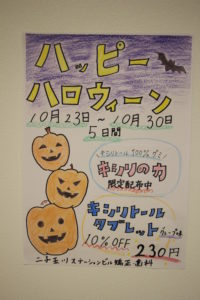 ハッピー
ハロウィーン
10月23日～10月30日
5日間
キシリトール100%グミ
キシリの力
限定配布中
キシリトール
タブレット
グレープ味
10%OFF 230円
二子玉川ステーションビル矯正歯科